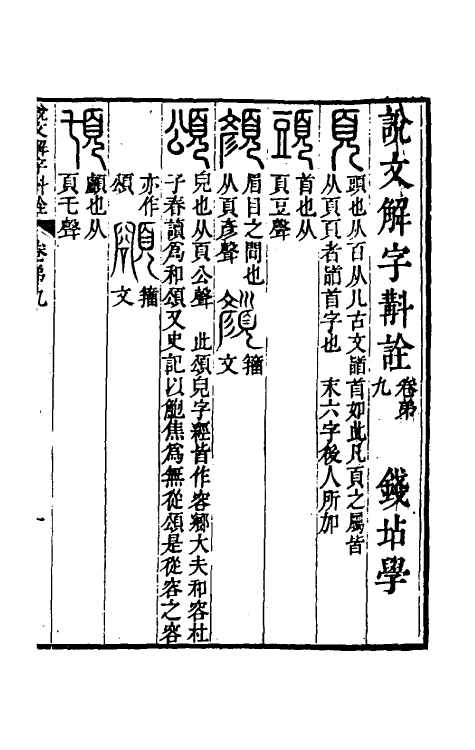 說文解字斠詮 卷弟九 錢坫學
頁 頭也从𦣻从儿古文䭫首如此凡頁之屬皆
从頁頁者䭫首字也 末六字後人所加
頭 首也从
頁豆聲
顏 眉目之間也
从頁彥聲
籒
文
頌 皃也从頁公聲 此頌皃字經皆作容鄉大夫和容杜
子春讀爲和頌又史記以鮑焦爲無從頌是從容之容
亦作
頌
籒
文
頇 顱也从
頁乇聲
說文解字斠詮 卷弟九 一